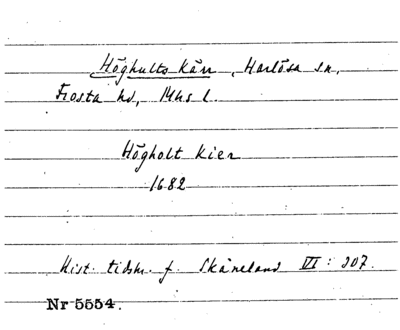 Höghults kärr, Harlösa sn,
Frosta hd, Mhs l.
Högholt Kier
1682
Hist. tidskr. f. Skåneland VI: 307.
Nr 5554.